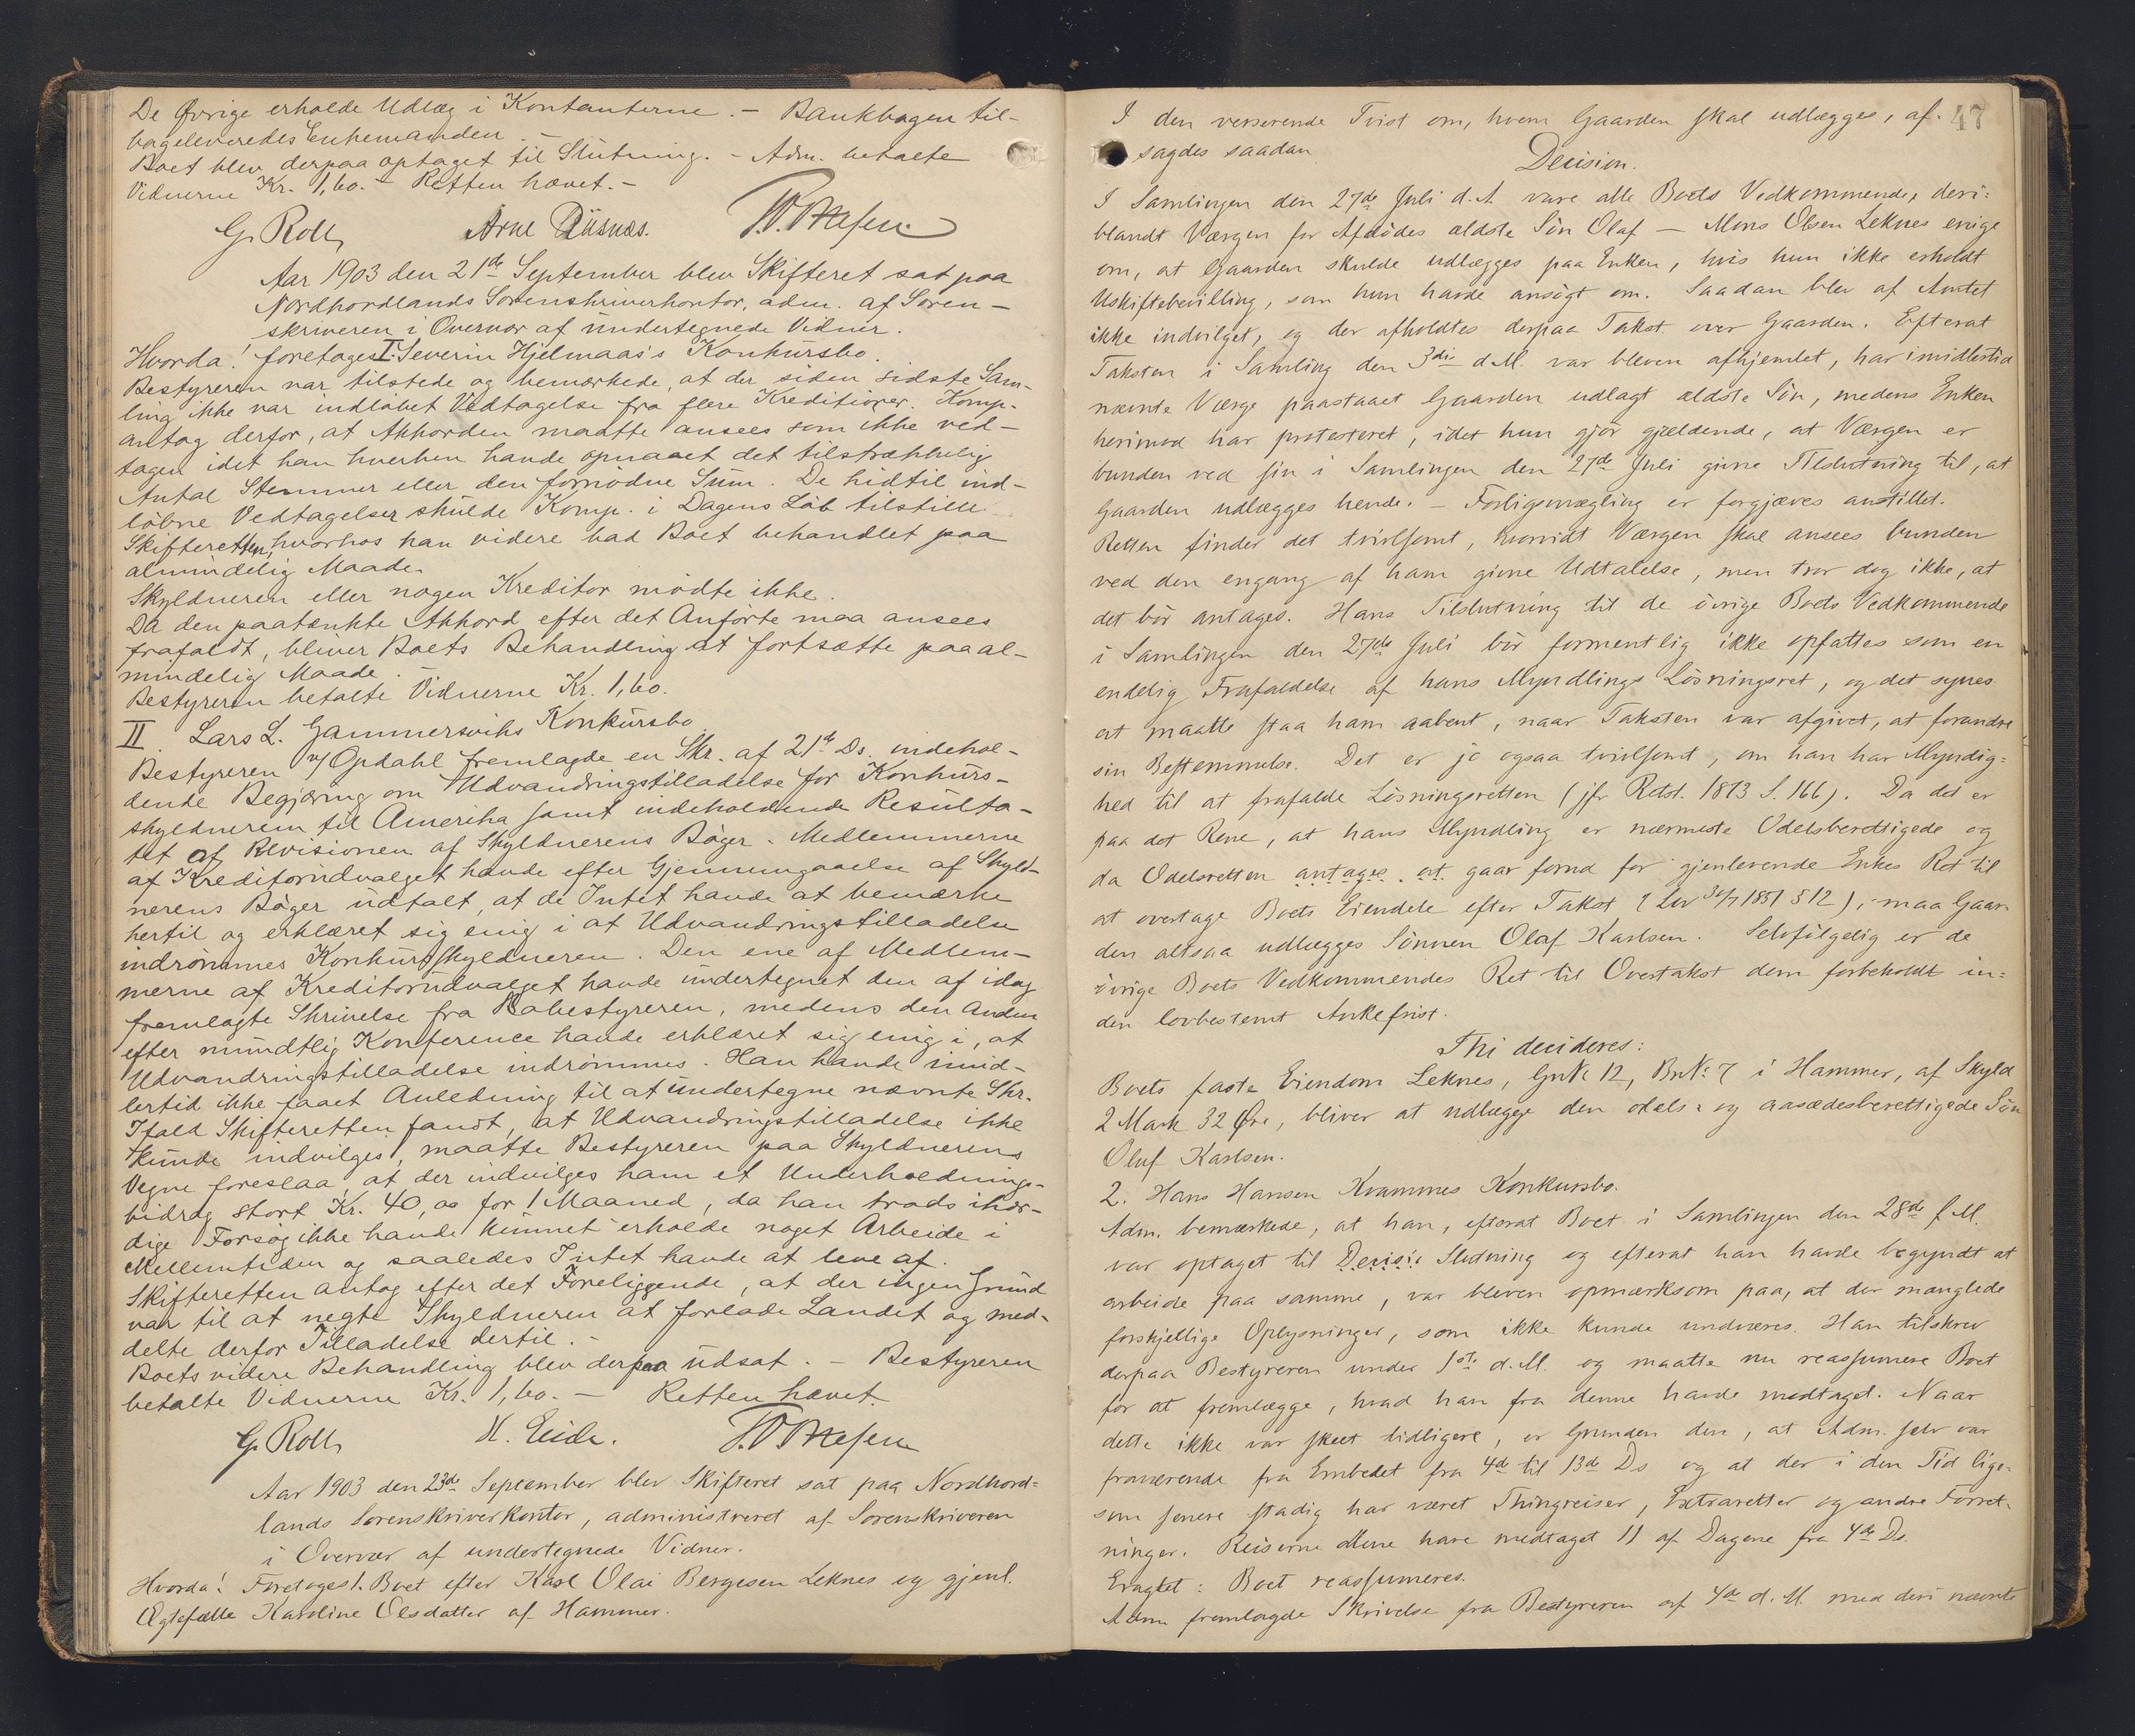 De Øvrige erholde Udlæg i Kontanterne. – Bankbogen til-
bageleveredes Enkemanden. –
Boet blev derpaa optaget til Slutning. – Adm. betalte
Vidnerne Kr. 1,60. – Retten hævet. –
G. Roll Arne Diisnæs.
Aar 1903 den 21de September blev Skifteret sat paa
Nordhordlands Sorenskriverkontor, adm. af Soren-
skriveren i Overvær af undertegnede Vidner.
Hvorda! foretoges I. Severin Hjelmaas's Konkursbo.
Bestyreren var tilstede og bemærkede, at der siden sidste Sam-
ling ikke var indløbet Vedtagelse fra flere Kreditorer. Komp.
antog derfor, at Akkorden maatte ansees som ikke ved-
tagen idet han hverken havde opnaaet det tilstrækkelig
Antal Stemmer eller den fornødne Sum. De hidtil ind-
løbne Vedtagelser skulde Komp. i Dagens Løb tilstille
Skifteretten, hvorhos han videre bad Boet behandlet paa
almindelig Maade.
Skyldneren eller nogen Kreditor mødte ikke.
Da den paatænkte Akkord efter det Anførte maa ansees
frafaldt, bliver Boets Behandling at fortsætte paa al-
mindelig Maade.
Bestyreren betalte Vidnerne Kr. 1,60.
II. Lars L. Gammersviks Konkursbo
Bestyreren v/ Opdahl fremlagde en Skr. af 21de Ds. indehol-
dende Begjæring om Udvandringstilladelse for Konkurs-
skyldneren til Amerika samt indeholdende Resulta-
tet af Revisionen af Skyldnerens Bøger. Medlemmerne
af Kreditorudvalget havde efter Gjennemgaaelse af Skyld-
nerens Bøger udtalt, at de Intet havde at bemærke
hertil og erklæret sig enig i at Udvandringstilladelse
indrømmes Konkursskyldneren. Den ene af Medlem-
merne af Kreditorudvalget havde undertegnet den af idag
fremlagte Skrivelse fra Bobestyreren, medens den Anden
efter mundtlig Konference havde erklæret sig enig i, at
Udvandringstilladelse indrømmes. Han havde imid-
lertid ikke faaet Anledning til at undertegne nævnte Skr.
Ifald Skifteretten fandt, at Udvandringstilladelse ikke
kunde indvilges, maatte Bestyreren paa Skyldnerens
Vegne foreslaa, at der indvilges ham et Underholdnings-
bidrag stort Kr. 40,00 for 1 Maaned, da han trods ihær-
dige Forsøg ikke havde kunnet erholde noget Arbeide i
Mellemtiden og saaledes Intet havde at leve af.
Skifteretten antog efter det Foreliggende, at der ingen Grund
var til at negte Skyldneren at forlade Landet og med-
delte derfor Tilladelse dertil. –
Boets videre Behandling blev derpaa udsat. – Bestyreren
betalte Vidnerne Kr. 1,60. – Retten hævet.
G. Roll H. Eide.
Aar 1903 den 23de September blev Skifteret sat paa Nordhord-
lands Sorenskriverkontor, administreret af Sorenskriveren
i Overvær af undertegnede Vidner.
Hvorda! Foretoges 1. Boet efter Karl Olai Bergesen Leknes og gjenl.
Ægtefælle Karoline Olsdatter af Hammer.
47
I den verserende Tvist om, hvem Gaarden skal udlægges, af-
sagdes saadan
Decision.
I Samlingen den 27de Juli d.A. vare alle Boets Vedkommende, deri-
blandt Værgen for Afdødes ældste Søn Olaf – Mons Olsen Leknes enige
om, at Gaarden skulde udlægges paa Enken, hvis hun ikke erholdt
Uskiftebevilling, som hun havde ansøgt om. Saadan blev af Amtet
ikke indvilget, og der afholdtes derpaa Takst over Gaarden. Efterat
Taksten i Samling den 3die d.M. var bleven afhjemlet, har imidlertid
nævnte Værge paastaaet Gaarden udlagt ældste Søn, medens Enken
herimod har protesteret, idet hun gjør gjældende, at Værgen er
bunden ved sin i Samlingen den 27de Juli givne Tilslutning til, at
Gaarden udlægges hende. – Forligsmægling er forgjæves anstillet.
Retten finder det tvivlsomt, hvorvidt Værgen skal ansees bunden
ved den engang af ham givne Udtalelse, men tror dog ikke, at
det bør antages. Hans Tilslutning til de øvrige Boets Vedkommende
i Samlingen den 27de Juli bør formentlig ikke opfattes som en
endelig Frafaldelse af hans Myndlings Løsningsret, og det synes
at maatte staa ham aabent, naar Taksten var afgivet, at forandre
sin Bestemmelse. Det er jo ogsaa tvivlsomt, om han har Myndig-
hed til at frafalde Løsningsretten (jfr Rdst. 1873 S. 166). Da det er
paa det Rene, at hans Myndling er nærmeste Odelsberettigede og
da Odelsretten antages at gaar forud for gjenlevende Enkes Ret til
at overtage Boets Eiendele efter Takst (Lov 31/7 1851 § 12), maa Gaar-
den altsaa udlægges Sønnen Olaf Karlsen. Selvfølgelig er de
øvrige Boets Vedkommendes Ret til Overtakst dem forbeholdt in-
den lovbestemt Ankefrist.
Thi decideres:
Boets faste Eiendom Leknes, GnNo 12, BnNo 7 i Hammer, af Skyld
2 Mark 32 Øre, bliver at udlægge den odels- og aasædesberettigede Søn
Oluf Karlsen.
2. Hans Hansen Kvammes Konkursbo.
Adm. bemærkede, at han, efterat Boet i Samlingen den 28de f.M.
var optaget til Decisi Slutning og efterat han havde begyndt at
arbeide paa samme, var bleven opmærksom paa, at der manglede
forskjellige Oplysninger, som ikke kunde undværes. Han tilskrev
derpaa Bestyreren under 1ste d.M. og maatte nu reassumere Boet
for at fremlægge, hvad han fra denne havde modtaget. Naar
dette ikke var skeet tidligere, er Grunden den, at Adm. selv var
fraværende fra Embedet fra 4de til 13de Ds og at der i den Tid lige-
som senere stadig har været Thingreiser, Extraretter og andre Forret-
ninger. Reiserne alene have medtaget 11 af Dagene fra 4de Ds.
Eragtet: Boet reassumeres.
Adm fremlagde Skrivelse fra Bestyreren af 4de d.M. med deri nævnte